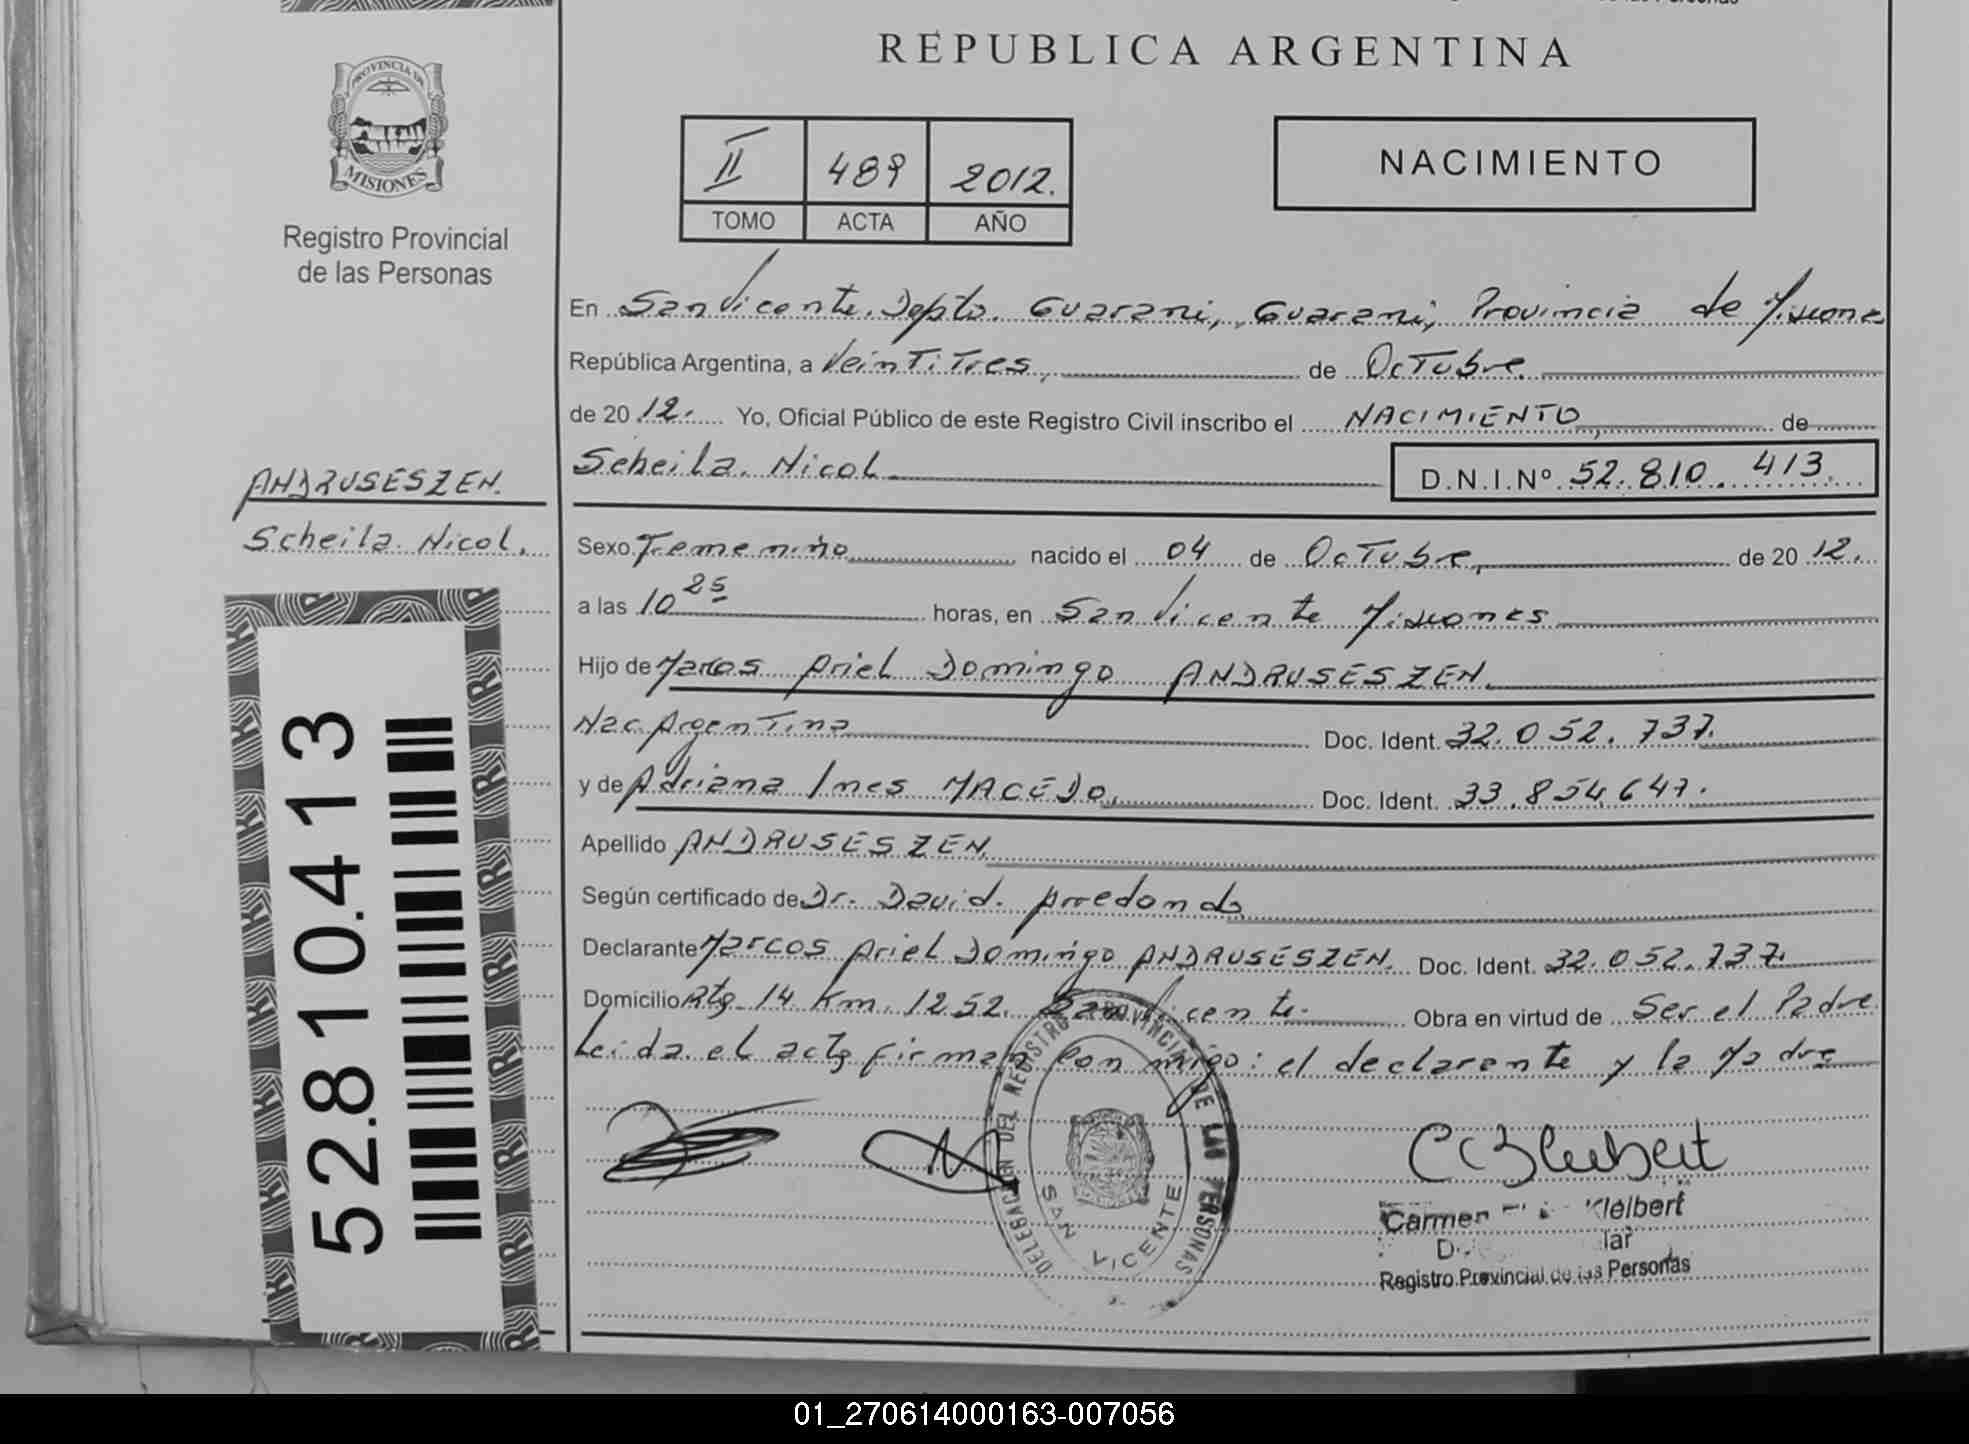 REPUBLICA ARGENTINA
PROVINCIA DE
MISIONES
Registro Provincial
de las Personas
II 489 2012.
TOMO ACTA AÑO
NACIMIENTO
En San Vicente. Depto. Guarani, Guarani, Provincia de Misiones
República Argentina, a Veintitres, de Octubre
de 20 12. Yo, Oficial Público de este Registro Civil inscribo el NACIMIENTO, de
Scheila. Nicol D.N.I.Nº 52.810.413.
ANDRUSESZEN.
Scheila Nicol.
Sexo Femenino nacido el 04 de Octubre, de 20 12.
a las 10 25 horas, en San Vicente Misiones
Hijo de Marcos Ariel Domingo ANDRUSESZEN.
Nac. Argentina Doc. Ident. 32.052.737.
y de Adriana Ines MACEDO, Doc. Ident. 33.854.647.
Apellido ANDRUSESZEN
Según certificado de Dr. David. Arredondo
Declarante Marcos Ariel Domingo ANDRUSESZEN. Doc. Ident. 32.052.737.
Domicilio Rta. 14 Km. 1252. San Vicente. Obra en virtud de Ser el Padre
Leida el acta firman con migo: el declarante y la Madre
52.810.413
DELEGACION DEL REGISTRO PROVINCIAL DE LAS PERSONAS
SAN VICENTE
Carmen Kleibert
Registro Provincial de las Personas
01_270614000163-007056